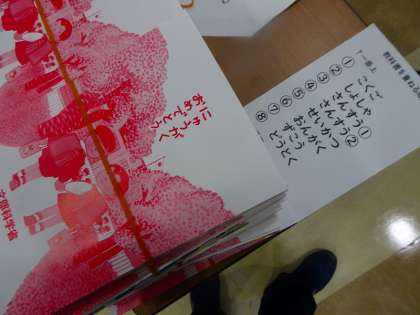 にゅうがく
おめでとう
文部科学省
教科書を重ね
↑一番上
①こくご
②しょしゃ
③さんすう①
④さんすう②
⑤せいかつ
⑥おんがく
⑦ずこう
⑧どうとく